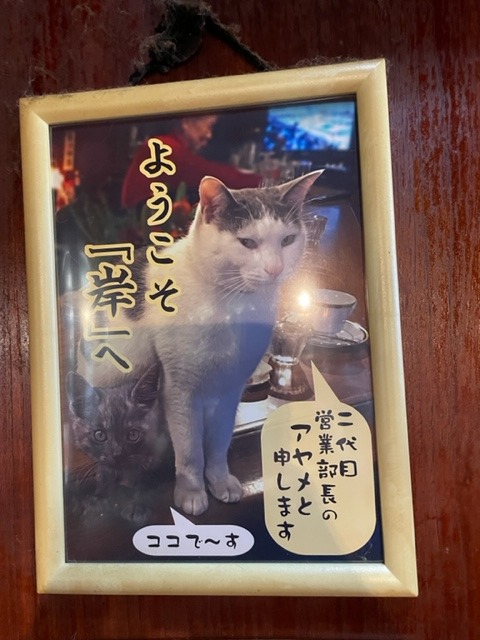 ようこそ
『岸』へ
二代目
営業部長の
アヤメと
申します
ココで〜す